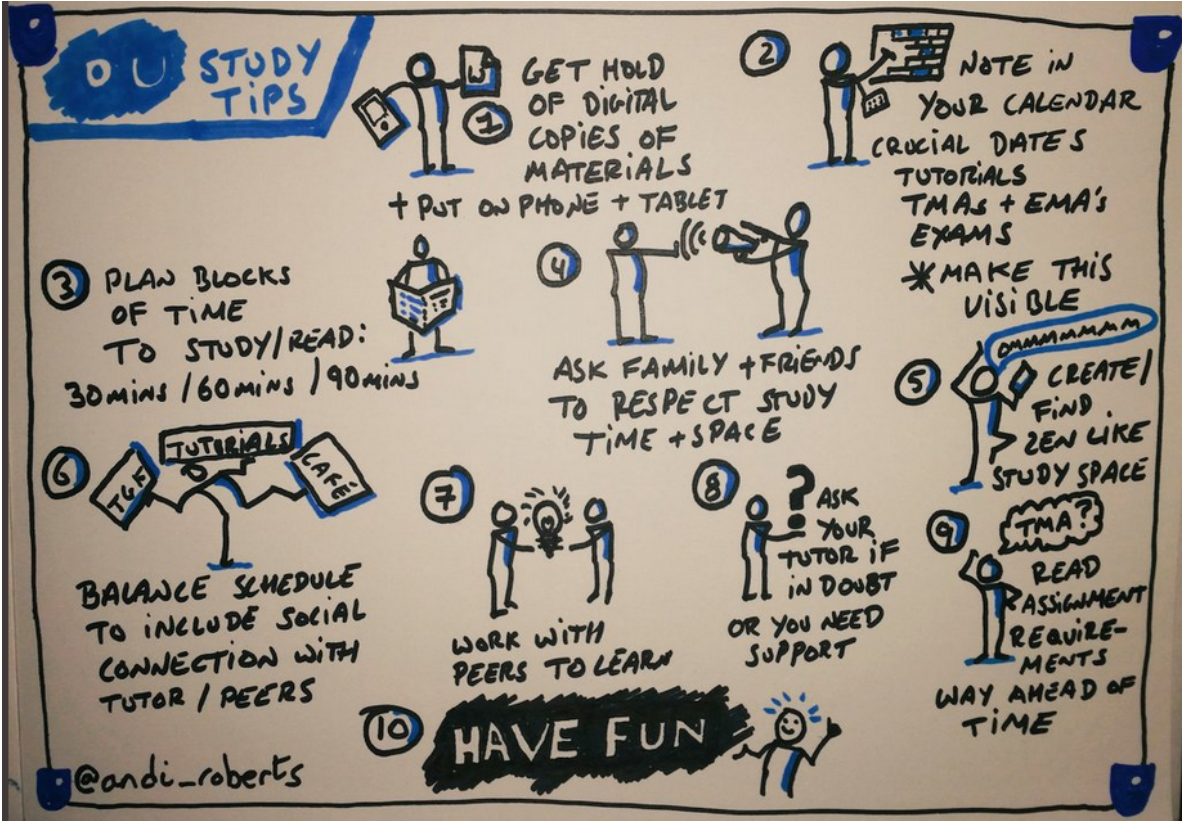 OU STUDY
TIPS
W
1
GET HOLD
OF DIGITAL
COPIES OF
MATERIALS
+ PUT ON PHONE + TABLET
2
NOTE IN
YOUR CALENDAR
CRUCIAL DATES
TUTORIALS
TMAs + EMA's
EXAMS
*MAKE THIS
VISIBLE
3 PLAN BLOCKS
OF TIME
TO STUDY/READ:
30 MINS / 60 MINS / 90 MINS
4
ASK FAMILY + FRIENDS
TO RESPECT STUDY
TIME + SPACE
OMMMMMMM
5 CREATE/
FIND
ZEN LIKE
STUDY SPACE
6
TGF
TUTORIALS
CAFÉ
BALANCE SCHEDULE
TO INCLUDE SOCIAL
CONNECTION WITH
TUTOR / PEERS
7
WORK WITH
PEERS TO LEARN
8
? ASK
YOUR
TUTOR IF
IN DOUBT
OR YOU NEED
SUPPORT
9
TMA?
READ
ASSIGNMENT
REQUIRE-
MENTS
WAY AHEAD OF
TIME
10 HAVE FUN
@andi_roberts